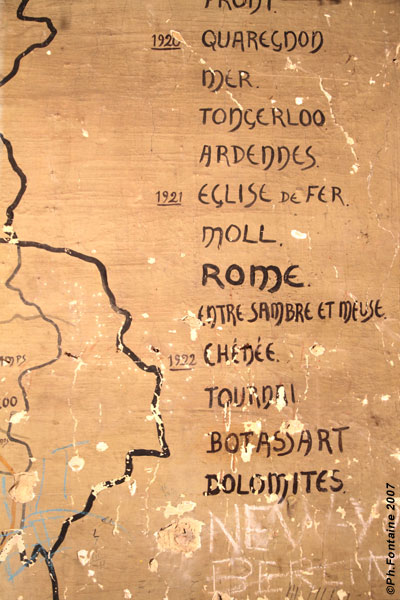 FRONT.
1920 QUAREGNON
MER.
TONGERLOO
ARDENNES.
1921 EGLISE DE FER.
MOLL.
ROME.
ENTRE SAMBRE ET MEUSE.
1922 CHÊNÉE.
TOURNAI
BOTASSART
DOLOMITES.
BERLIN
©Ph.Fontaine 2007